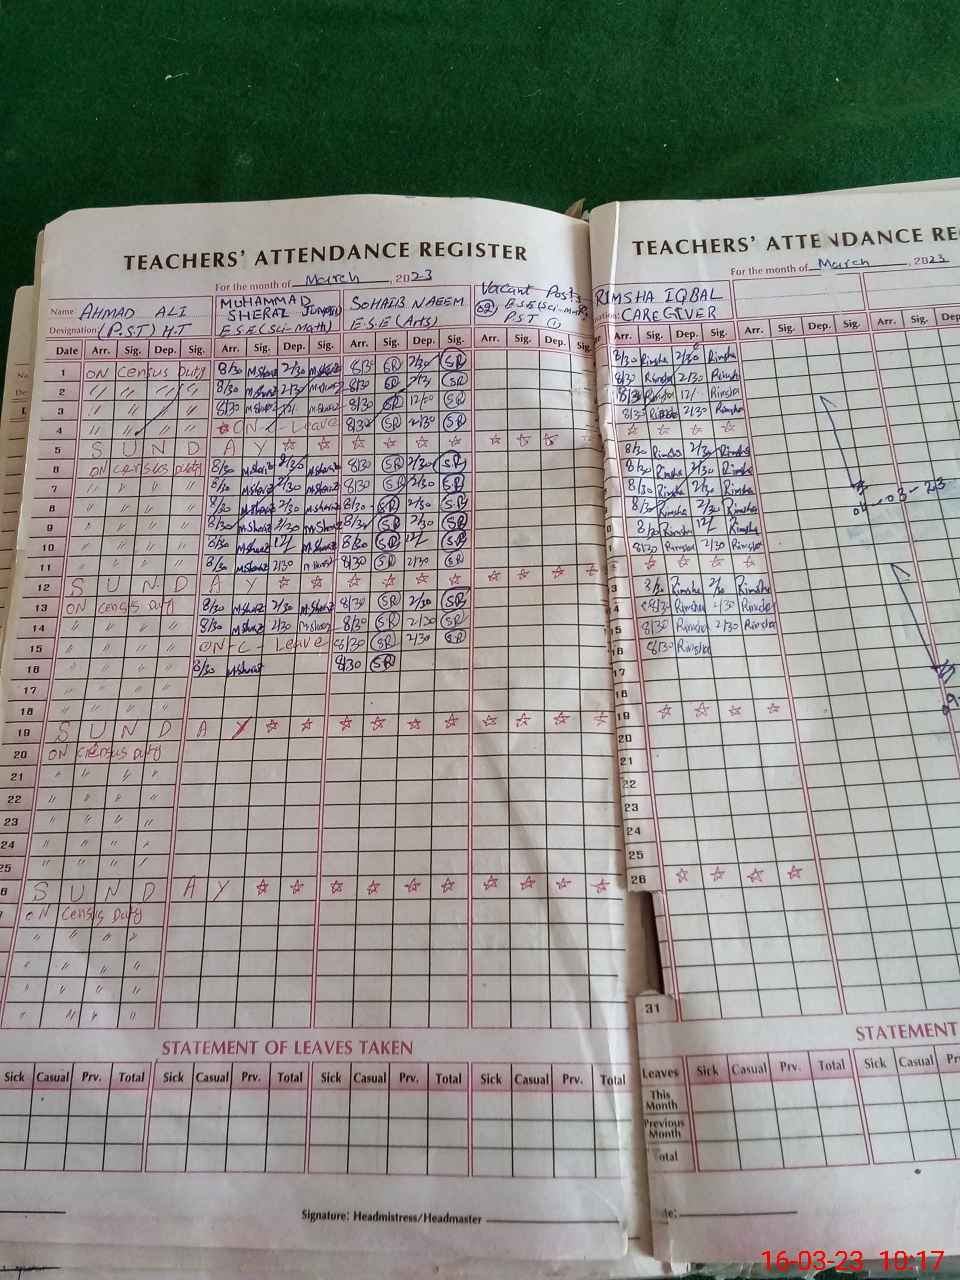 TEACHERS' ATTENDANCE REGISTER
For the month of March, 2023
Name AHMAD ALI MUHAMMAD SHERAZ SOHAIB NAEEM Vacant Posts
Designation (P.S.T) H.T E.S.E (Sci-Math) E.S.E (Arts) 02 E.S.E (Sci-Math) P.S.T 1
Date Arr. Sig. Dep. Sig. Arr. Sig. Dep. Sig. Arr. Sig. Dep. Sig. Arr. Sig. Dep. Sig.
1 ON Census Duty 8/30 M Sheraz 2/30 M Sheraz 8/30 SR 2/30 SR
2 〃 〃 〃 〃 8/30 M Sheraz 2/30 M Sheraz 8/30 SR SR
3 〃 〃 〃 〃 8/30 M Sheraz 12/ M Sheraz 8/30 SR 12/00 SR
4 〃 〃 〃 〃 ☆ ON-C-Leave 8/30 SR 2/30 SR
5 S U N D A Y ☆ ☆ ☆ ☆ ☆ ☆ ☆ ☆ ☆
6 ON Census Duty 8/30 M Sheraz 2/30 M Sheraz 8/30 SR 2/30 SR
7 〃 〃 〃 〃 8/30 M Sheraz 2/30 M Sheraz 8/30 SR 2/30 SR
8 〃 〃 〃 〃 8/30 M Sheraz 2/30 M Sheraz 8/30 SR 2/30 SR
9 〃 〃 〃 〃 8/30 M Sheraz 2/30 M Sheraz 8/30 SR 2/30 SR
10 〃 〃 〃 〃 8/30 M Sheraz 12/ M Sheraz 8/30 SR 12/ SR
11 〃 〃 〃 〃 8/30 M Sheraz 2/30 8/30 SR 2/30 SR
12 S U N D A Y ☆ ☆ ☆ ☆ ☆ ☆ ☆ ☆ ☆ ☆
13 ON Census Duty 8/30 M Sheraz 2/30 M Sheraz 8/30 SR 2/30 SR
14 〃 〃 〃 〃 8/30 M Sheraz 2/30 M Sheraz 8/30 SR 2/30 SR
15 〃 〃 〃 〃 ON-C-Leave 8/30 SR 2/30 SR
16 〃 〃 〃 〃 8/30 M Sheraz 8/30 SR
17 〃 〃 〃 〃
18 〃 〃 〃 〃
19 S U N D A Y ☆ ☆ ☆ ☆ ☆ ☆ ☆ ☆ ☆ ☆
20 ON Census Duty
21 〃 〃 〃 〃
22 〃 〃 〃 〃
23 〃 〃 〃 〃
24 〃 〃 〃 〃
25 〃 〃 〃 〃
6 S U N D A Y ☆ ☆ ☆ ☆ ☆ ☆ ☆ ☆ ☆ ☆
ON Census Duty
〃 〃 〃 〃
〃 〃 〃 〃
〃 〃 〃 〃
〃 〃 〃 〃
STATEMENT OF LEAVES TAKEN
Sick Casual Prv. Total Sick Casual Prv. Total Sick Casual Prv. Total Sick Casual Prv. Total
Signature: Headmistress/Headmaster
TEACHERS' ATTENDANCE RE
For the month of March, 2023
RIMSHA IQBAL
CAREGIVER
Arr. Sig. Dep. Sig. Arr. Sig. Dep. Sig. Arr. Sig. Dep
8/30 Rimsha 2/30 Rimsha
8/30 Rimsha 2/30 Rimsha
8/30 Rimsha 12/ Rimsha
8/30 Rimsha 2/30 Rimsha
☆ ☆ ☆ ☆
8/30 Rimsha 2/30 Rimsha
8/30 Rimsha 2/30 Rimsha
8/30 Rimsha 2/30 Rimsha
8/30 Rimsha 2/30 Rimsha
8/30 Rimsha 12/ Rimsha
8/30 Rimsha 2/30 Rimsha
☆ ☆ ☆ ☆
8/30 Rimsha Rimsha
8/30 Rimsha 2/30 Rimsha
15 8/30 Rimsha 2/30 Rimsha
16 8/30 Rimsha
17
18
19 ☆ ☆ ☆ ☆
20
21
22
23
24
25
26 ☆ ☆ ☆ ☆
31
04-03-23
STATEMENT
Leaves Sick Casual Prv. Total Sick Casual Pr
This Month
Previous Month
Total
16-03-23 10:17